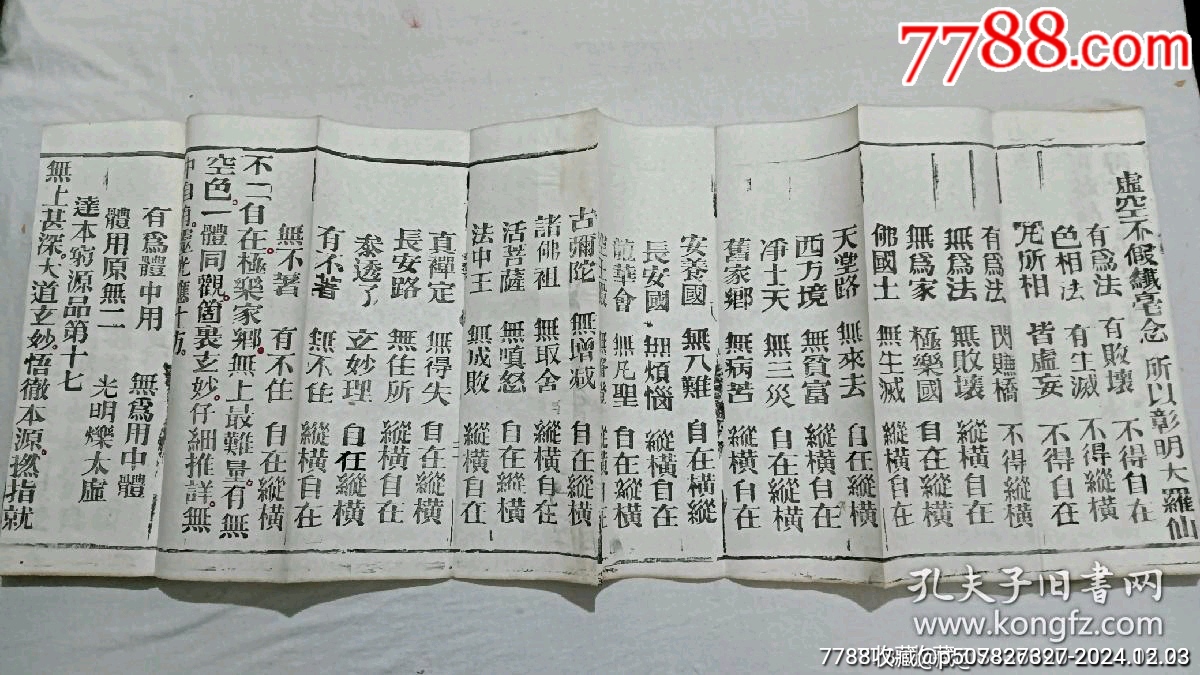 虛空不假纖毫念 所以彰明大羅仙
有爲法 有敗壞 不得自在
色相法 有生滅 不得縱橫
凡所相 皆虛妄 不得自在
有爲法 閃賺橋 不得縱橫
無爲法 無敗壞 縱橫自在
無爲家 極樂國 自在縱橫
佛國土 無生滅 縱橫自在
天堂路 無來去 自在縱橫
西方境 無貧富 縱橫自在
凈土天 無三災 自在縱橫
舊家鄉 無病苦 縱橫自在
安養國 無八難 自在橫縱
長安國 無煩惱 縱橫自在
龍華會 無凡聖 自在縱橫
古彌陀 無增减 自在縱橫
諸佛祖 無取舍 縱橫自在
活菩薩 無嗔怒 自在縱橫
法中王 無成敗 縱橫自在
真禪定 無得失 自在縱橫
長安路 無住所 縱橫自在
叅透了 玄妙理 自在縱橫
有不著 無不住 縱橫自在
無不著 有不住 自在縱橫
不二自在極樂家鄉無上最難量有無
空色一體同觀箇裏玄妙仔細推詳無
有爲體中用 無爲用中體
體用原無二 光明爍太虛
達本窮源品第十七
無上甚深大道玄妙悟徹本源撚指就
7788.com
孔夫子旧书网
www.kongfz.com
7788收藏@p507827327-2024.12.03